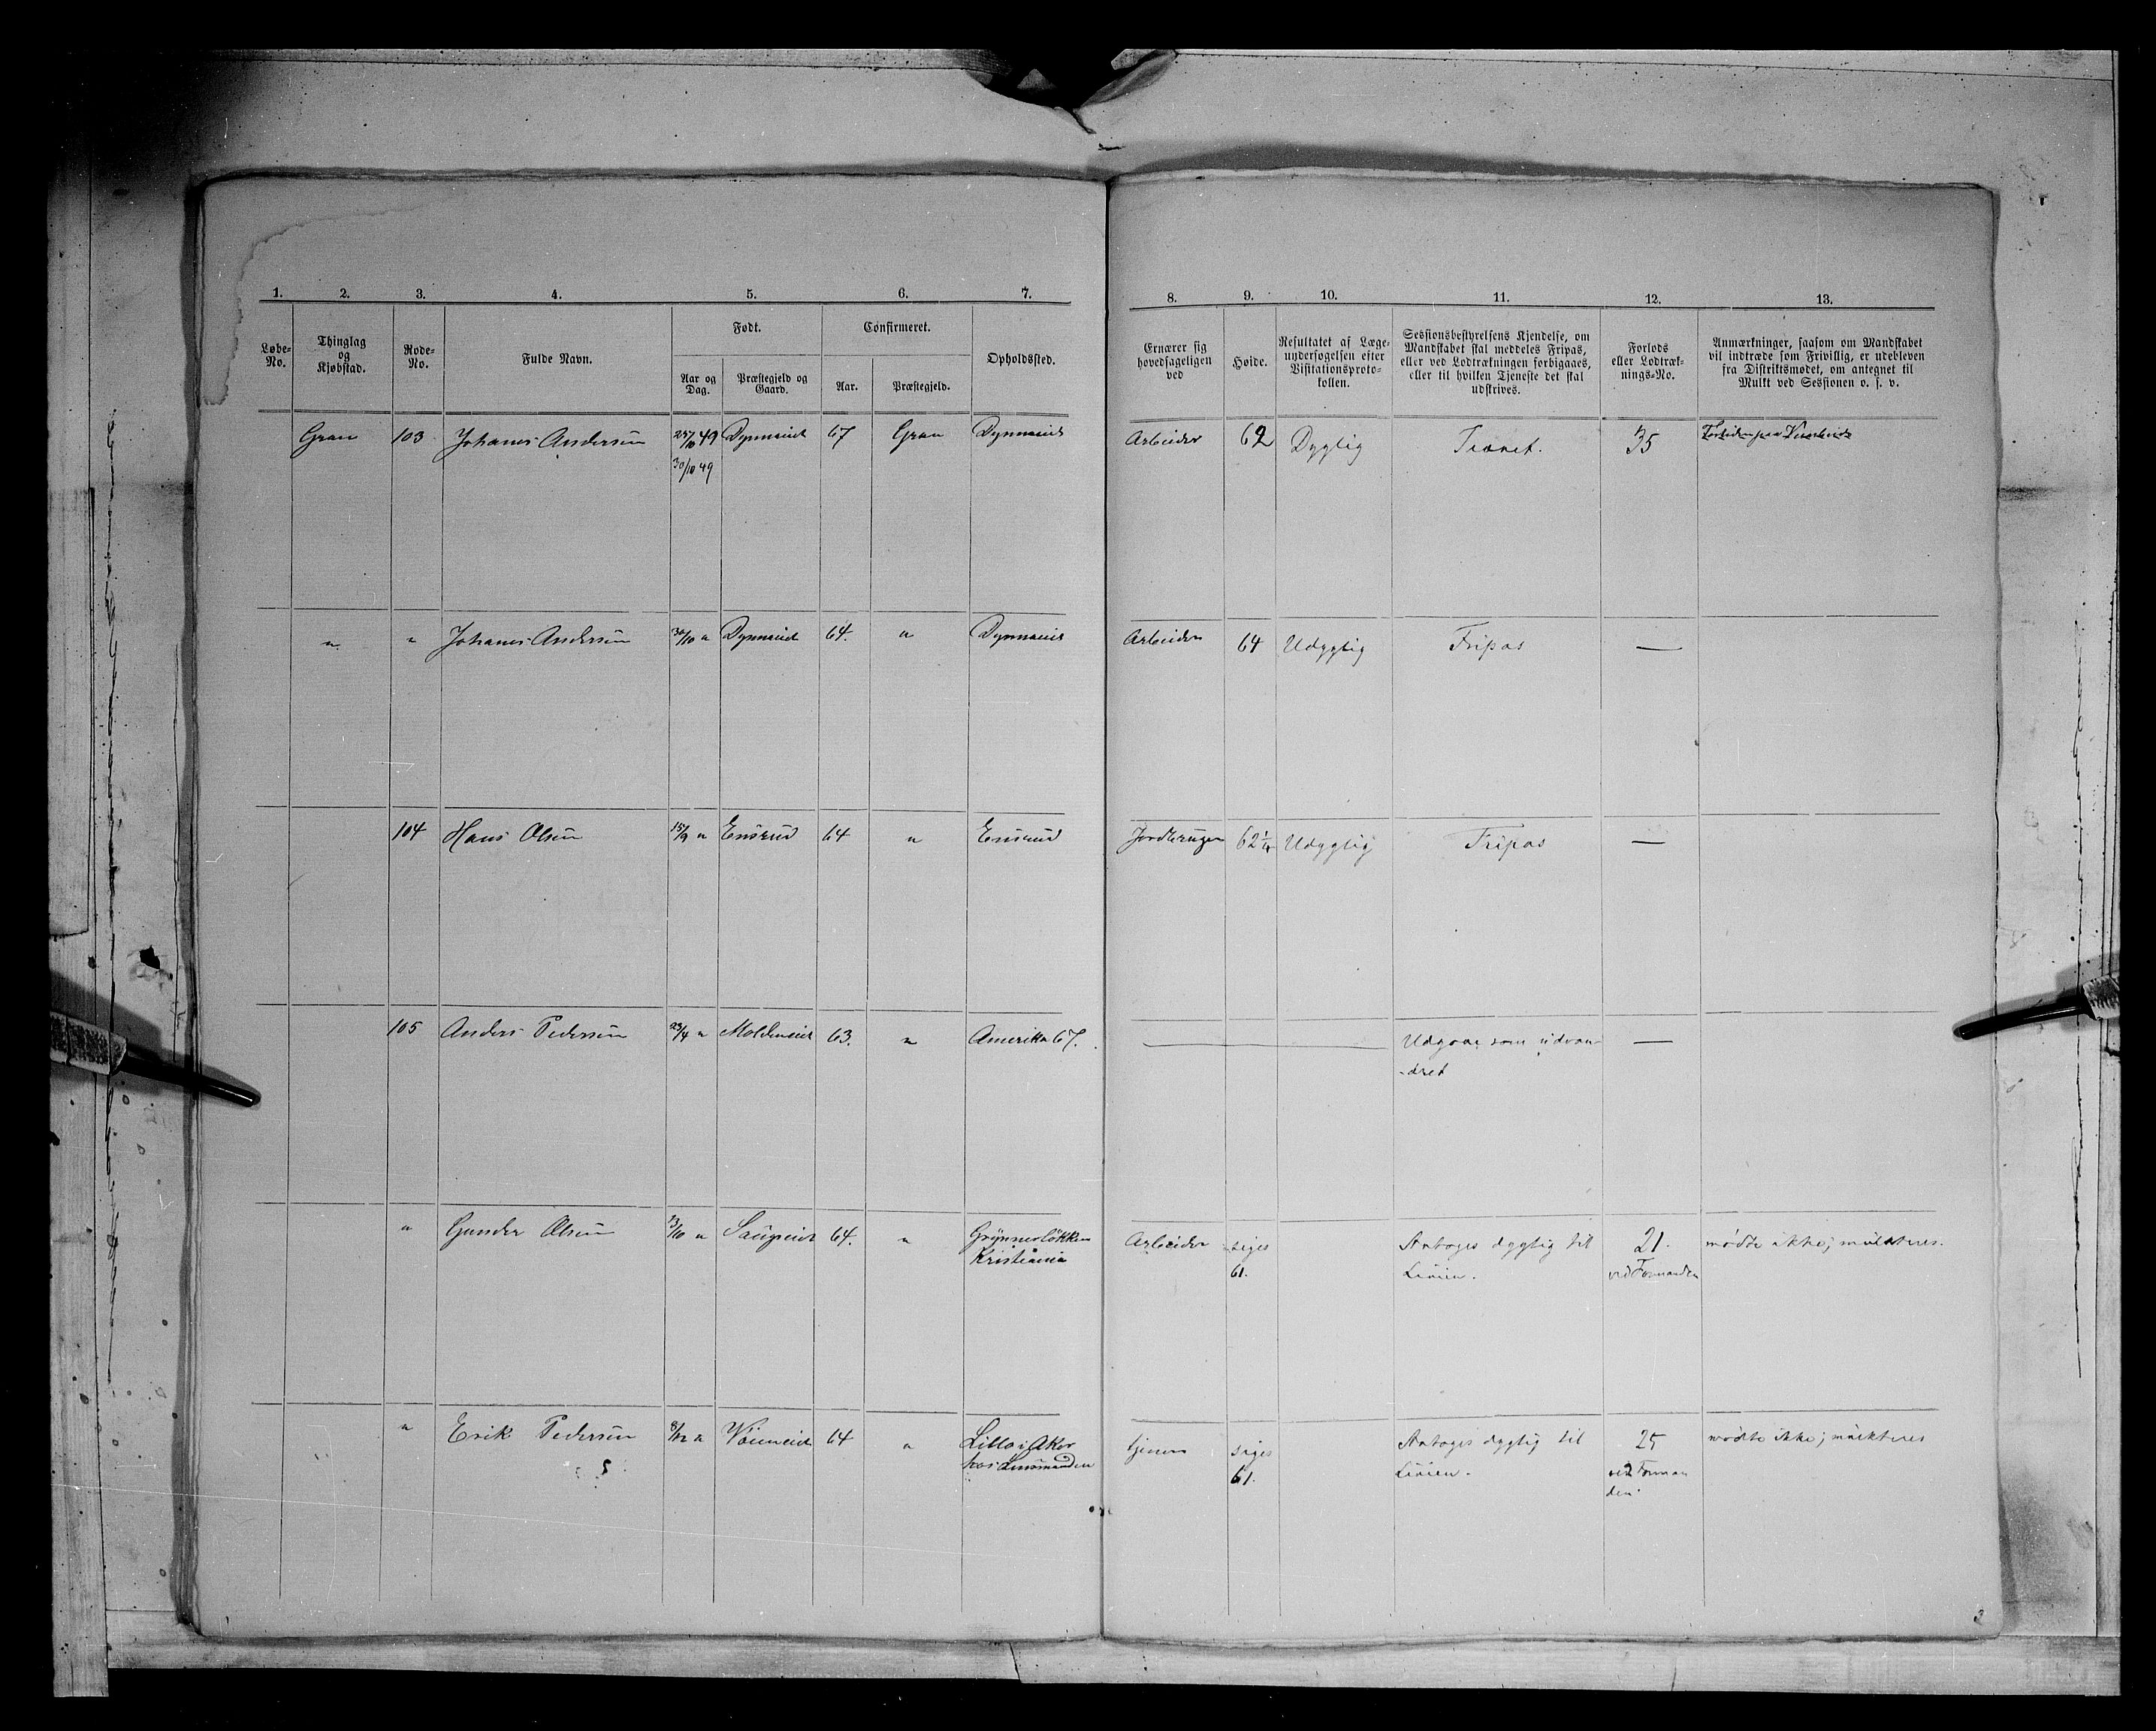 1. 2. 3. 4. 5. 6. 7.
Løbe-No. Thinglag og Kjøbstad. Rode-No. Fulde Navn. Født. Confirmeret. Opholdssted.
Aar og Dag. Præstegjeld og Gaard. Aar. Præstegjeld.
Gran 103 Johanes Andersen 25/10 49 Dynnaeiet 67 Gran Dynnaeiet
30/10 49
" " Johanes Andersen 30/10 " Dynnaeiet 64. " Dynnaeiet
104 Hans Olsen 15/9 " Ensrud 64 " Ensrud
105 Anders Pedersen 23/4 " Moldeneiet 63. " Amerika 67.
" Gunder Olsen 3/10 " Saugeiet 64. " Grynnerløkken
Kristiania
" Erik Pedersen 8/12 " Vøieneiet 64 " Lillo i Aker
hos Lensmanden
8. 9. 10. 11. 12. 13.
Ernærer sig hovedsageligen ved
Høide.
Resultatet af Lægeundersøgelsen efter Visitationsprotokollen.
Sessionsbestyrelsens Kjendelse, om Mandskabet skal meddeles Fripas, eller ved Lodtrækningen forbigaaes, eller til hvilken Tjeneste det skal udskrives.
Forlods eller Lodtræknings-No.
Anmærkninger, saasom om Mandskabet vil indtræde som Frivillig, er udebleven fra Distriktsmødet, om antegnet til Mulkt ved Sessionen o. s. v.
Arbeider 62 Dygtig Trænet. 35
Arbeider 64 Udygtig Fripas —
Jordbruger 62 1/4 Udygtig Fripas —
Udgaar som udvan-
-dret —
Arbeider siges
61. Antages dygtig til
Linien. 21.
ved Formanden mødte ikke; mulkteres.
tjener siges
61. Antages dygtig til
Linien. 25
ved Forman
den. mødte ikke; mulkteres